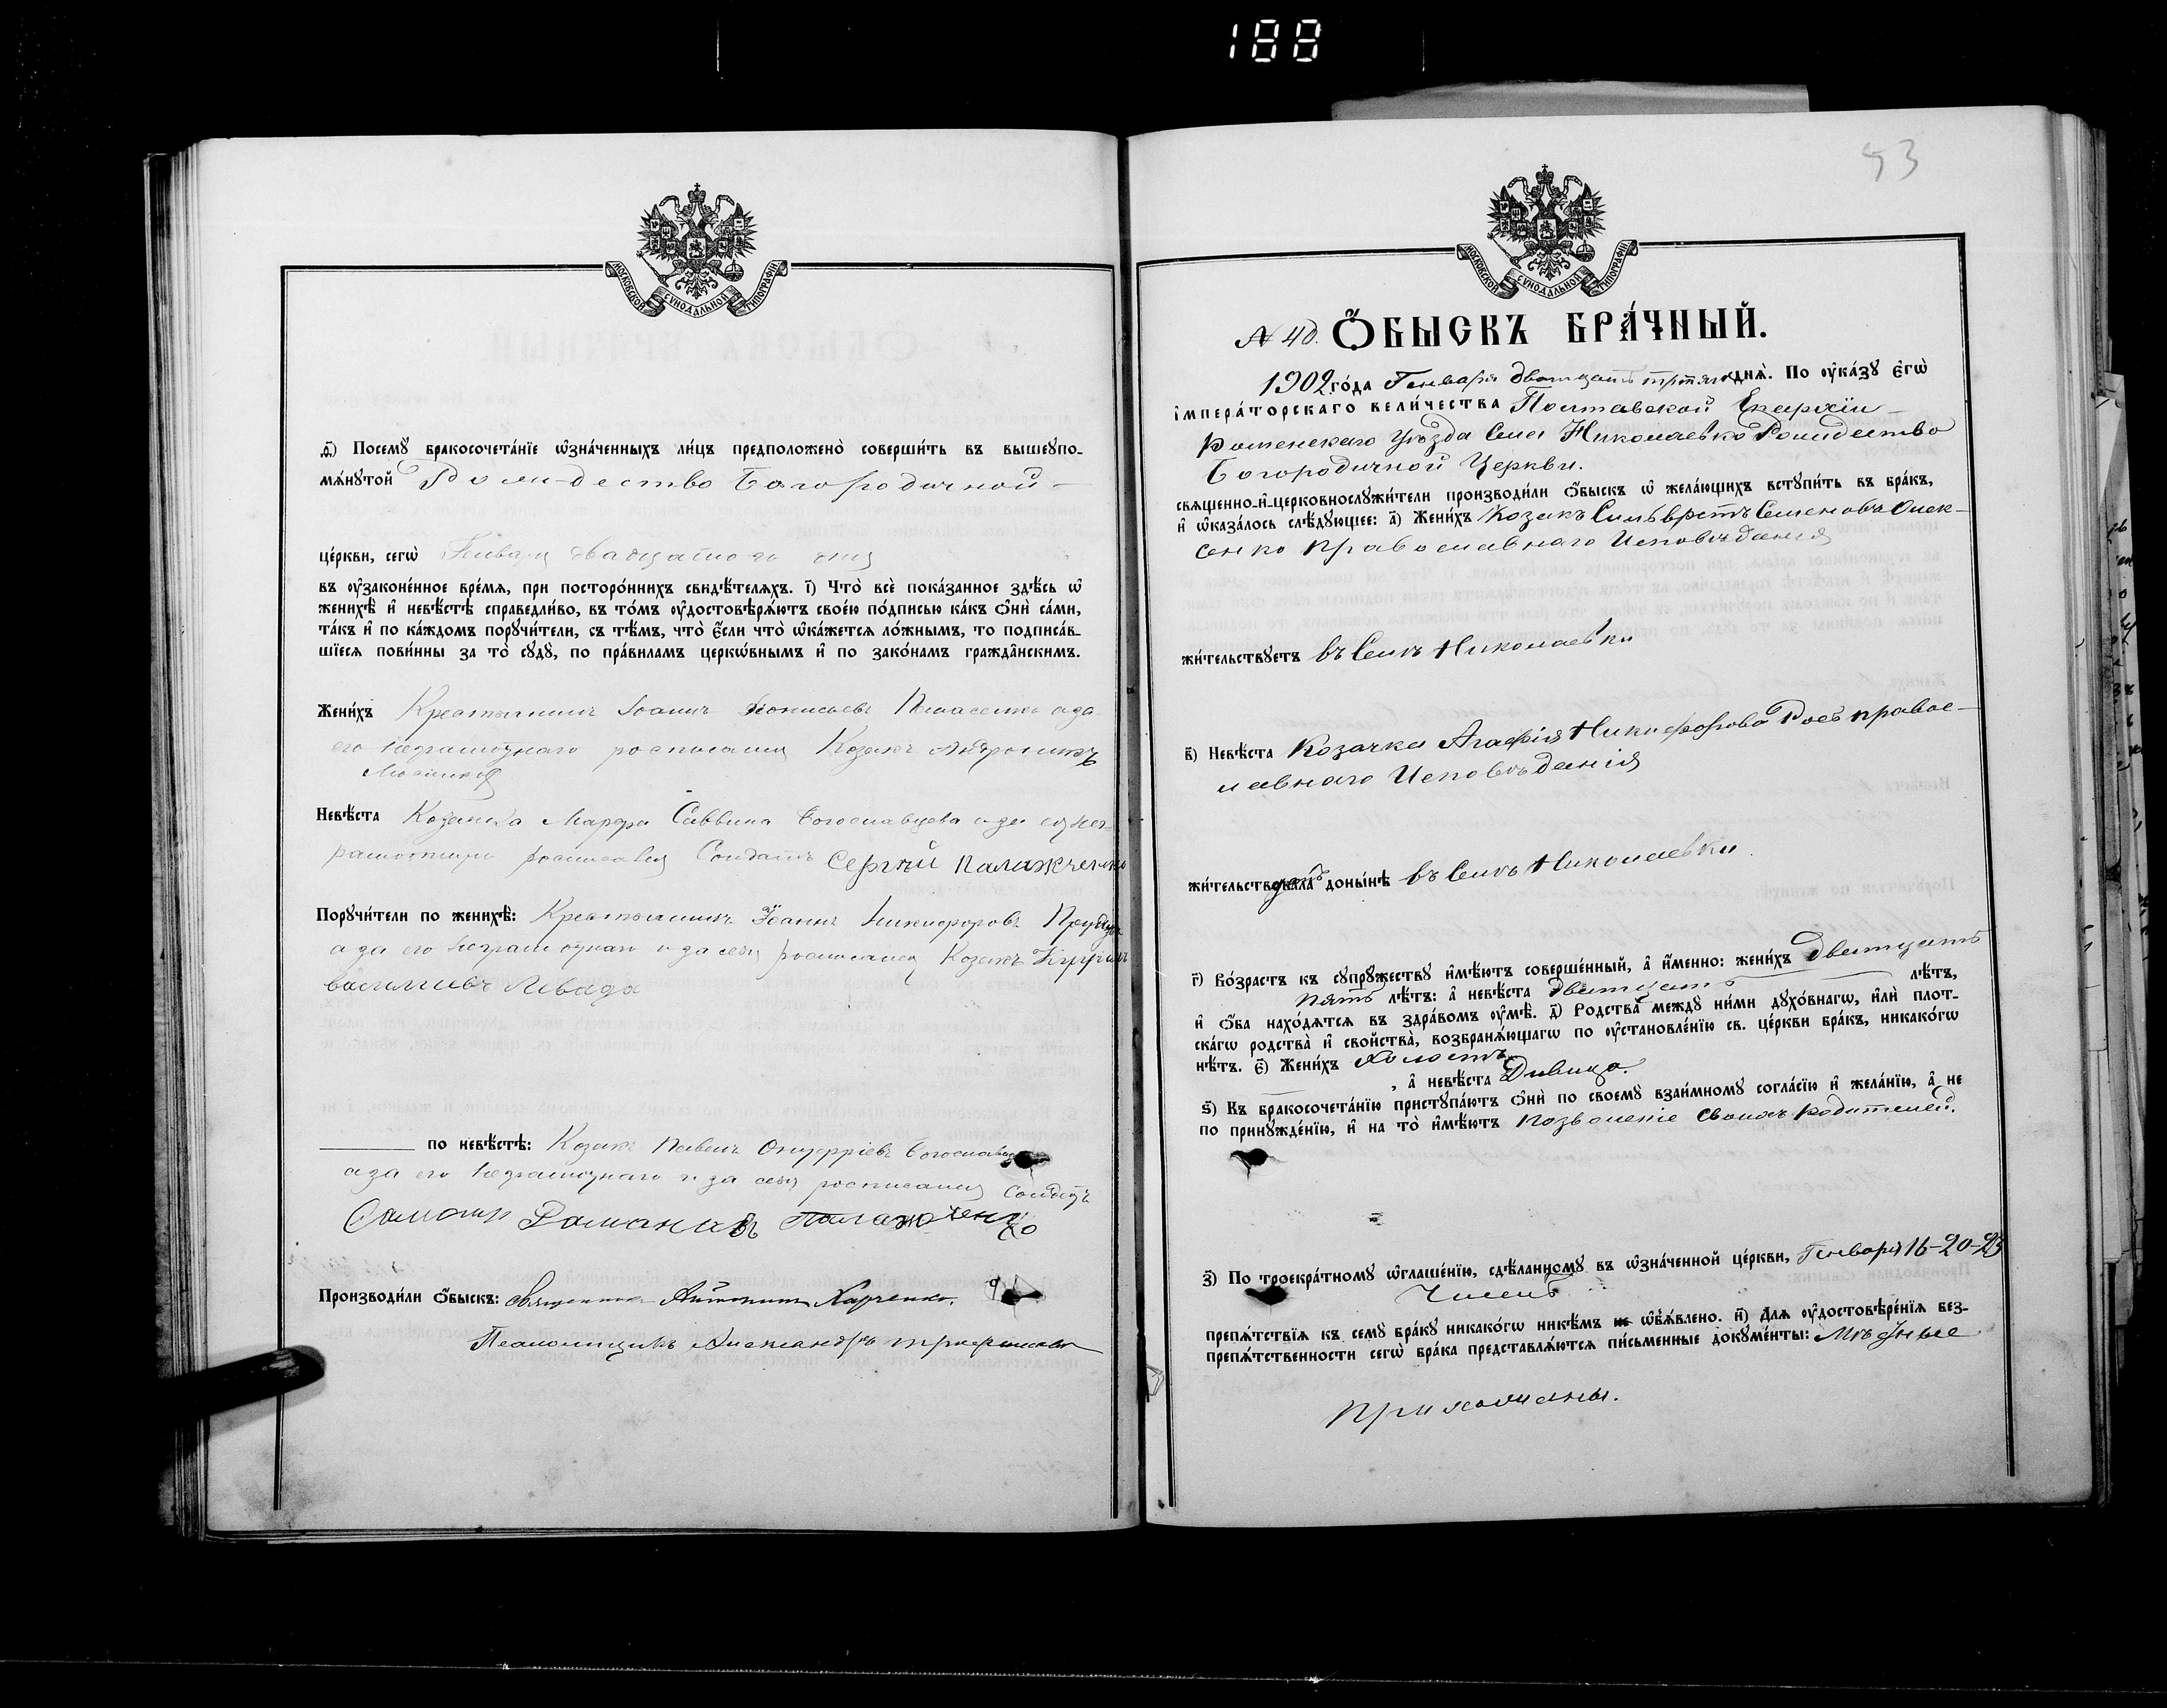 188
МОСКОВСКОЙ СѴНОДАЛЬНОЙ ТИПОГРАФІИ
ѳ҃) Посемꙋ бракосочета́нїе ѡ҆зна́ченныхъ ли́цъ предположено̀ соверши́ть въ вышеꙋпо-
мѧ́нꙋтой Рождество Богородичной
це́ркви, сегѡ̀ Генваря двадцатого дня
въ ᲂу҆законе́нное вре́мѧ, при посторо́ннихъ свидѣ́телѧхъ. і҃) Что̀ всѐ пока́занное здѣ́сь ѡ҆
женихѣ̀ и҆ невѣ́стѣ справедли́во, въ то́мъ ᲂу҆достовѣрѧ́ютъ свое́ю по́дписью ка́къ ѻ҆нѝ са́ми,
та́къ и҆ по ка́ждомъ порꙋчи́тели, съ тѣ́мъ, что̀ є҆́сли что̀ ѡ҆ка́жетсѧ ло́жнымъ, то подписа́в-
шїесѧ пови́нны за то̀ сꙋдꙋ̀, по пра́виламъ церко́внымъ и҆ по зако́намъ гражда́нскимъ.
Жени́хъ Крестьянинъ Іоаннъ а за
его неграмотнаго росписался Козакъ
Невѣ́ста Козачка Марфа Саввина Богославцева а за ея нег-
рамотную росписался Солдатъ Сергѣй Палажченко
Порꙋчи́тели по женихѣ̀: Крестьянинъ Іоаннъ Никифоровъ
а за его неграмотнаго и за себя росписался Козакъ
Васильевъ Левада
по невѣ́стѣ: Козакъ Павелъ Онуфріевъ
а за его неграмотнаго и за себя росписался Солдатъ
Романавъ Палажченко
Производи́ли ѻ҆́быскъ: Священникъ Антонинъ Харченко.
Псаломщикъ Александръ
МОСКОВСКОЙ СѴНОДАЛЬНОЙ ТИПОГРАФІИ
53
№ 40. Ѻ҆́БЫСКЪ БРА́ЧНЫЙ.
1902 го́да Генваря двадцать третяго днѧ̀. По ᲂу҆ка́зꙋ є҆гѡ̀
і҆мпера́торскаго вели́чества Полтавской Епархіи
Роменскаго Уѣзда Села Николаевка Рождество
Богородичной Церкви.
свѧщенно-и҆-церковнослꙋжи́тели производи́ли ѻ҆́быскъ ѡ҆ жела́ющихъ встꙋпи́ть въ бра́къ,
и҆ ѡ҆каза́лось слѣ́дꙋющее: а҃) Жени́хъ Козакъ Сильвестръ Семеновъ Олек-
сенко православнаго Исповѣданія
жи́тельствꙋетъ въ Селѣ Николаевки
в҃) Невѣ́ста Козачка Агафія Никифорова Роев правос-
лавнаго Исповѣданія
жи́тельствовала доны́нѣ въ Селѣ Николаевки
г҃) Во́зрастъ къ сꙋпрꙋ́жествꙋ и҆мѣ́ютъ соверше́нный, а҆ и҆́менно: жени́хъ двадцать
пять лѣ́тъ: а҆ невѣ́ста двадцать лѣ́тъ,
и҆ ѻ҆́ба нахо́дѧтсѧ въ здра́вомъ ᲂу҆мѣ̀. д҃) Родства̀ междꙋ̀ ни́ми дꙋхо́внагѡ, и҆лѝ плот-
ска́гѡ родства̀ и҆ свойства̀, возбранѧ́ющагѡ по ᲂу҆становле́нїю св. це́ркви бра́къ, никако́гѡ
нѣ́тъ. є҃) Жени́хъ Холостъ
, а҆ невѣ́ста Дивица.
ѕ҃) Къ бракосочета́нїю пристꙋпа́ютъ ѻ҆нѝ по своемꙋ̀ взаи́мномꙋ согла́сїю и҆ жела́нїю, а҆ не
по принꙋжде́нїю, и҆ на то̀ и҆мѣ́ютъ позволеніе своихъ родителей.
з҃) По троекра́тномꙋ ѡ҆глаше́нїю, сдѣ́ланномꙋ въ ѡ҆зна́ченной це́ркви, Генваря 16-20-23
Чиселъ
препѧ́тствїѧ къ семꙋ̀ бра́кꙋ никако́гѡ никѣ́мъ не ѡ҆б̾ѧ́влено. и҃) Длѧ ᲂу҆достовѣре́нїѧ без-
препѧ́тственности сегѡ̀ бра́ка представлѧ́ютсѧ пи́сьменные докꙋме́нты: Мѣсные
прихожаны.